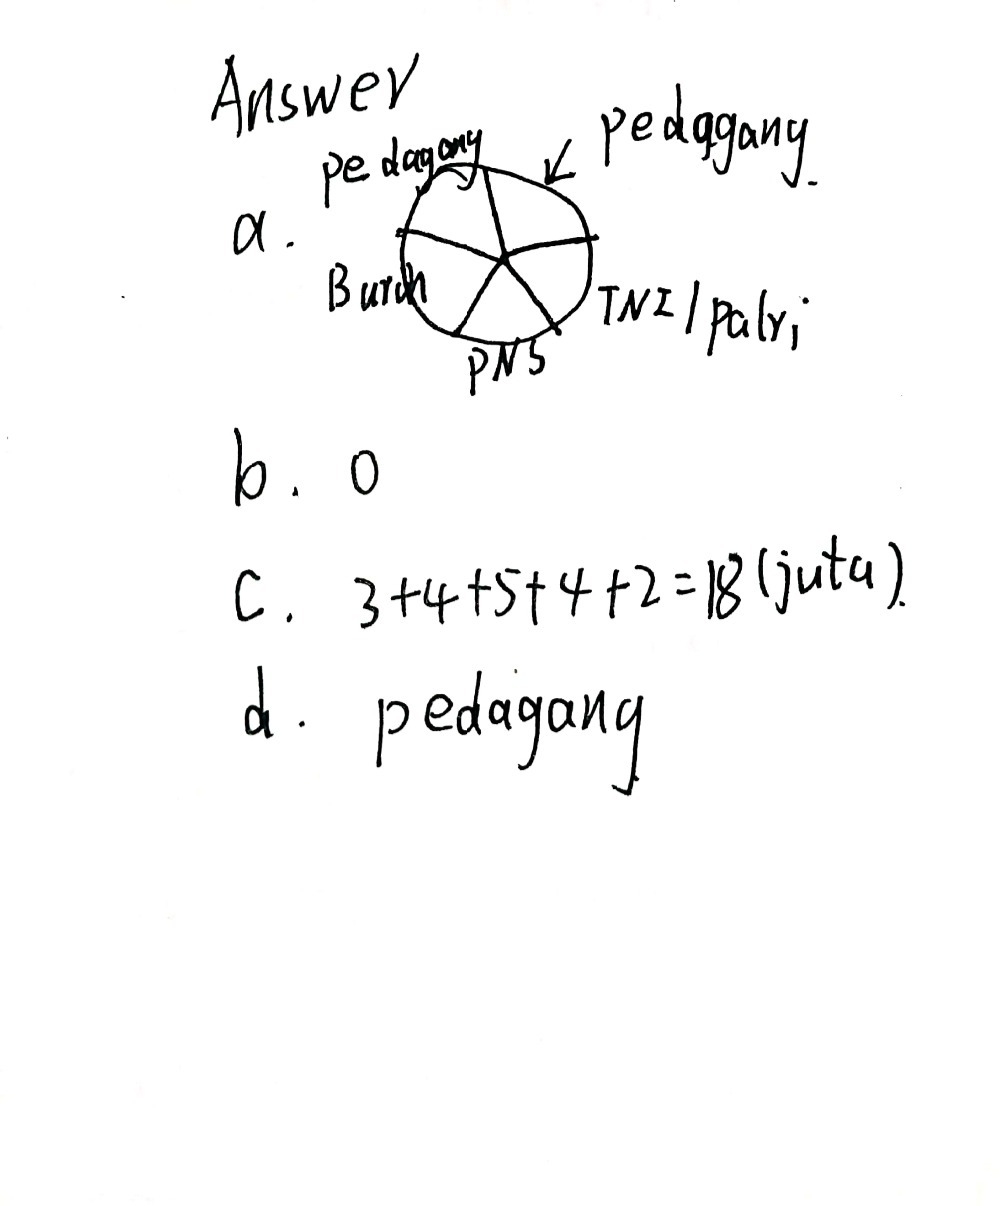 Answer
pedagang
pedagang.
a.
Buruh
TNI/palri
PNS
b. 0
c. 3+4+5+4+2=18(juta).
d. pedagang